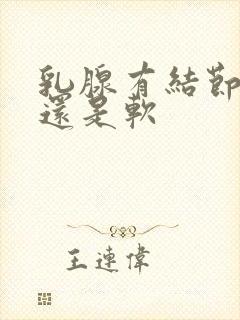 乳腺有結節
還是軟
王連偉